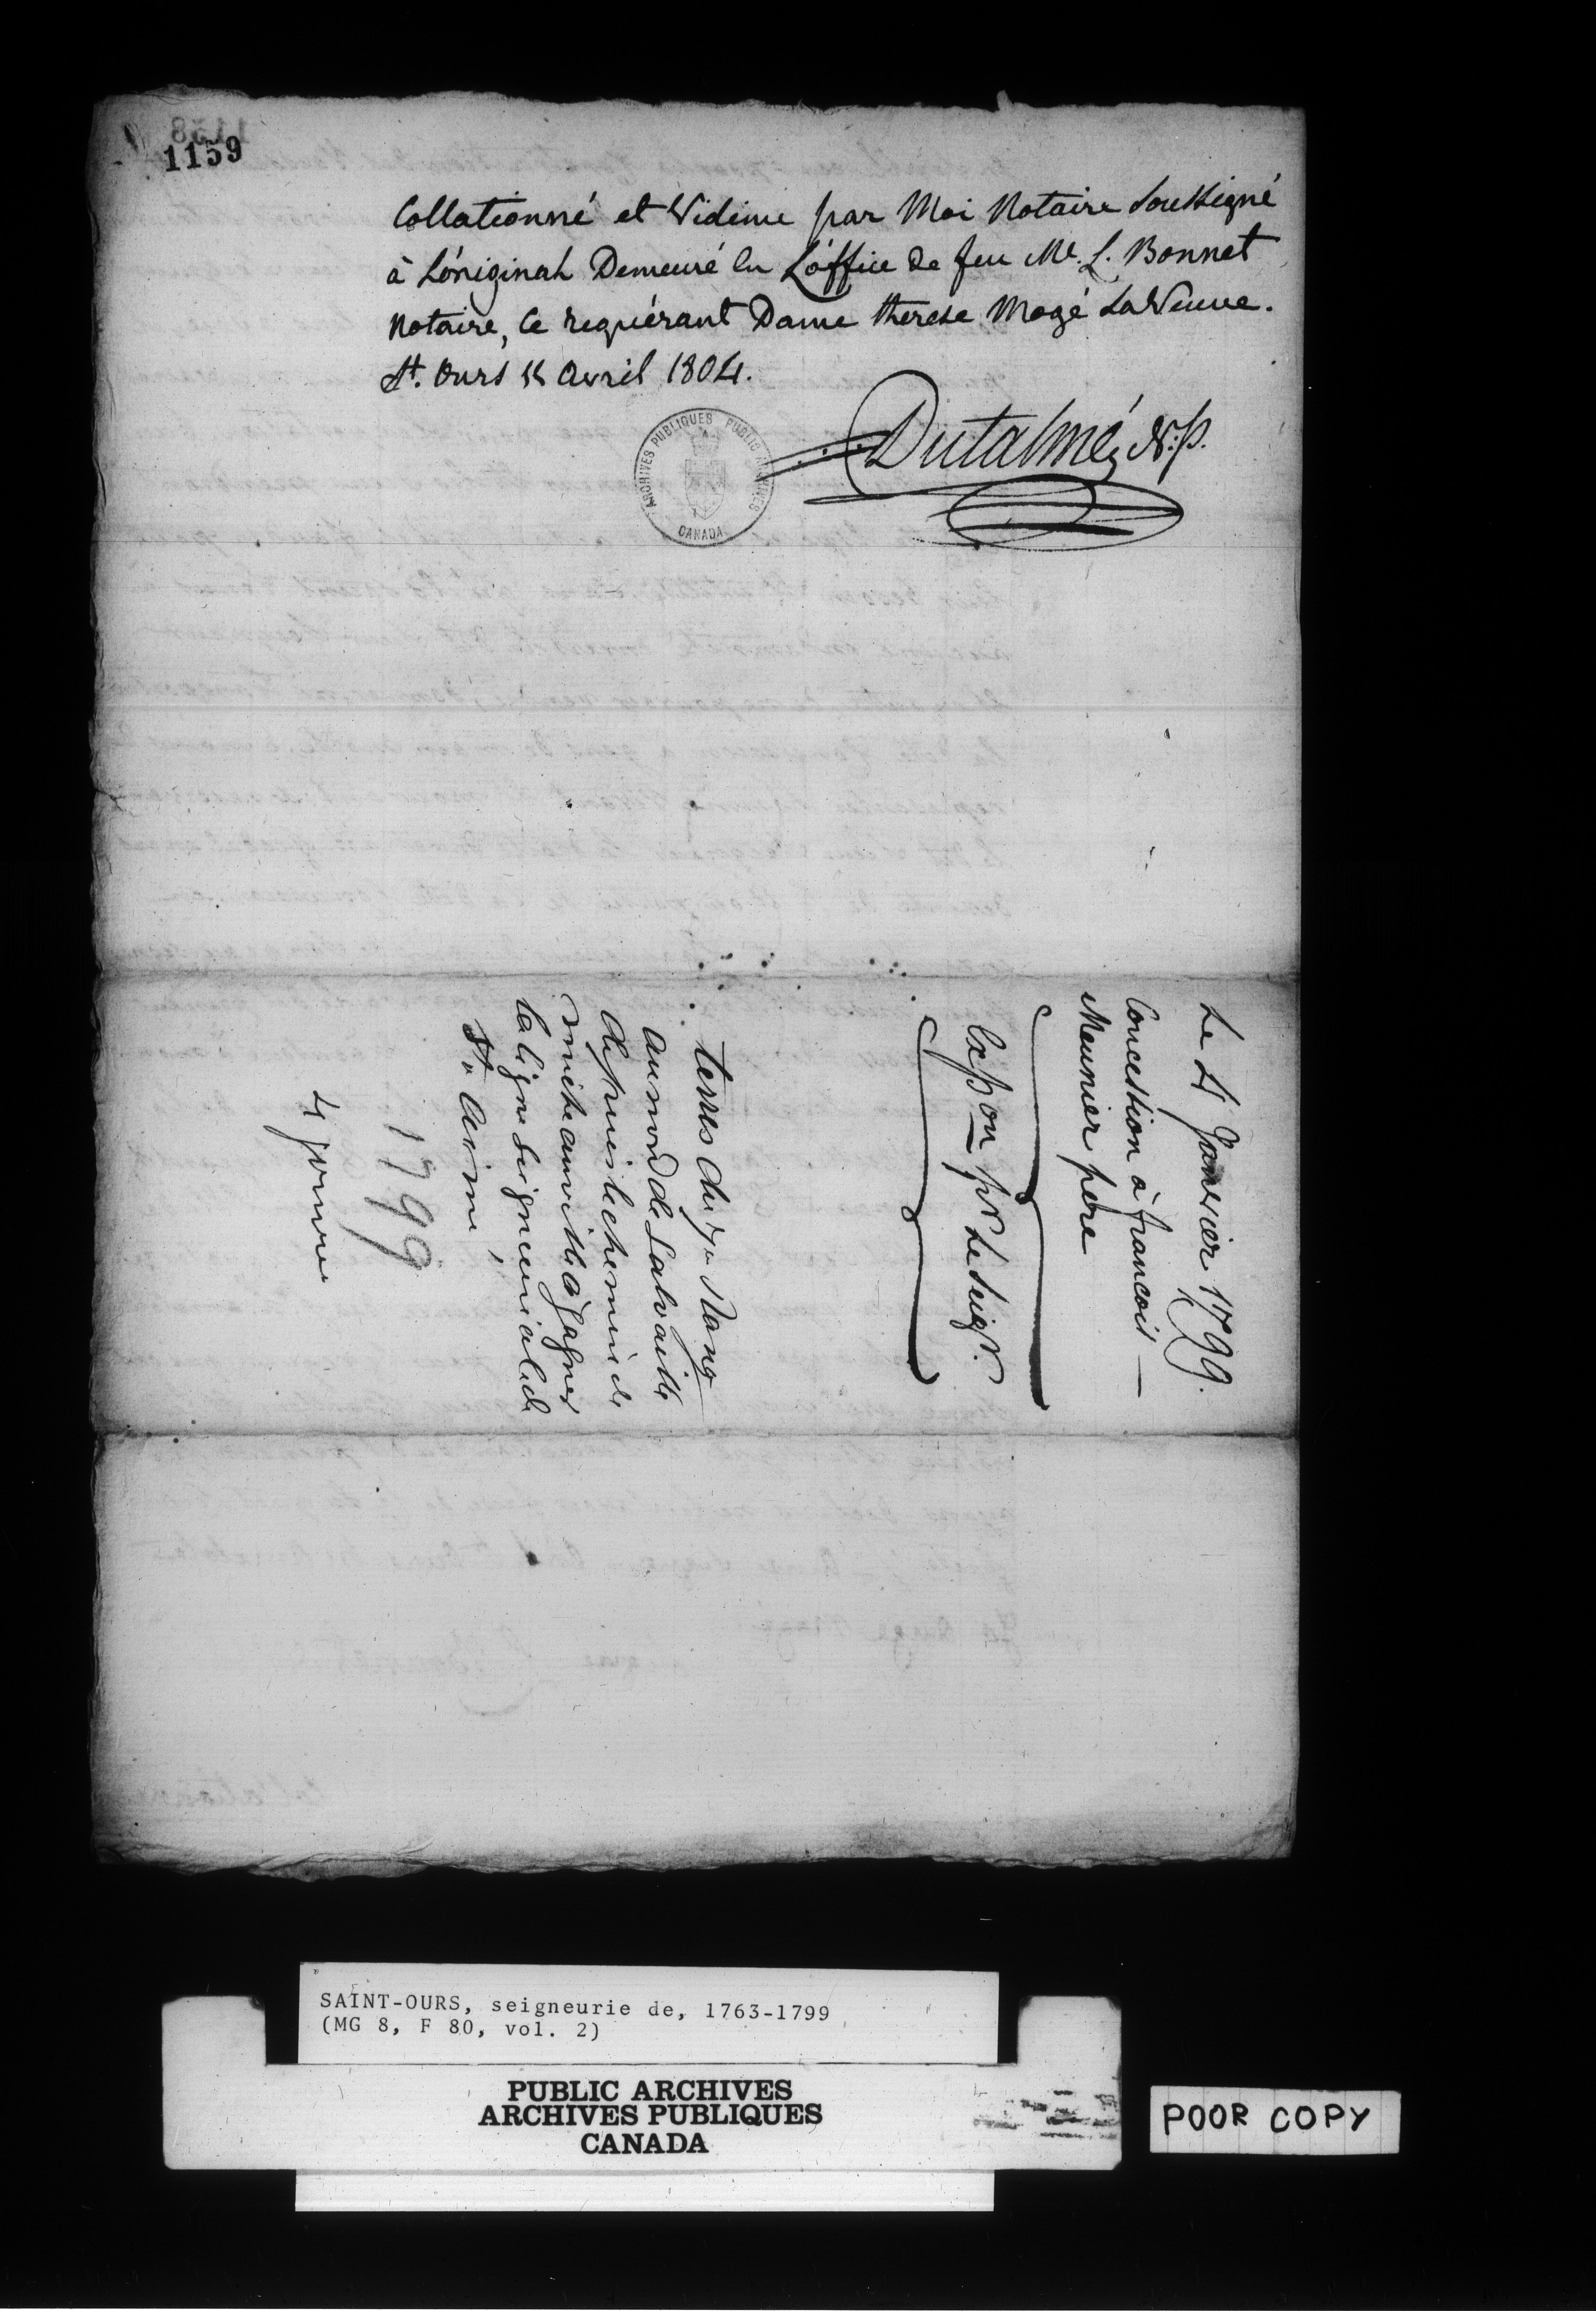 1159
Collationné et Vidimé par Moi Notaire Soussigné
à L'original Demeuré en L'office de feu Me. L. Bonnet
Notaire, Ce requérant Dame therese Mogé La Veuve.
St. Ours Avril 1804.
Dutalmé, N:p.
ARCHIVES PUBLIQUES PUBLIC ARCHIVES
CANADA
Le 4 Janvier 1799.
Concession à francois —
Meunier pere
Expon pr Le Seigr.
terres du Rang
au nord de Salvaille
depuis le chemin de
michauville à gagner
la ligne Seigneuriale de
St. Aimé
1799
4 Janvier
SAINT-OURS, seigneurie de, 1763-1799
(MG 8, F 80, vol. 2)
PUBLIC ARCHIVES
ARCHIVES PUBLIQUES
CANADA
POOR COPY